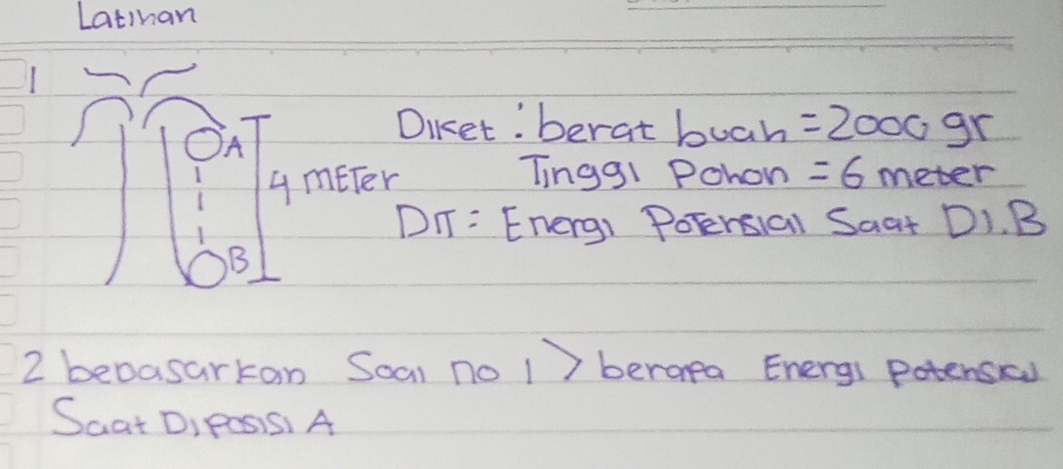 Latihan
1
A
4 METer
B
Diket : berat buah = 2000 gr
Tinggi Pohon = 6 meter
DIT = Energi Potensial Saat Di.B
2 bedasarkan Soal no 1 > berapa Energi potensial
Saat Diposisi A